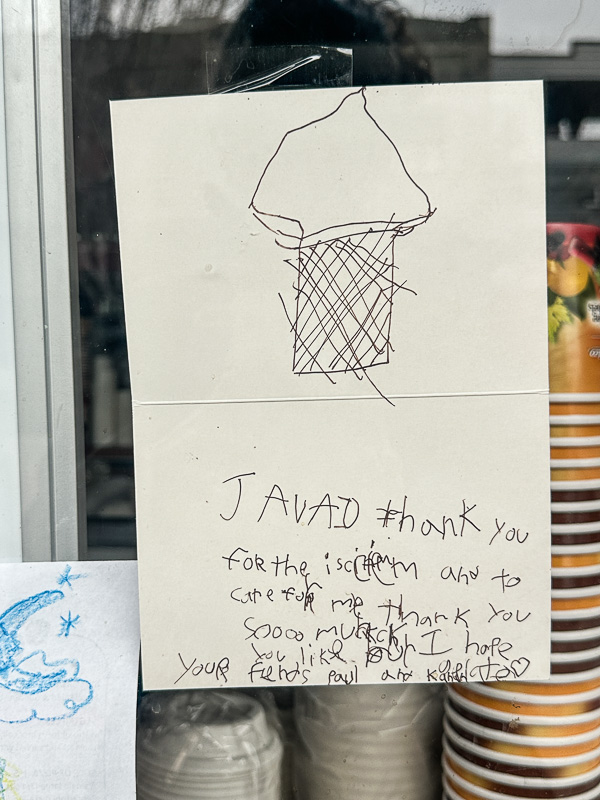 JAVAD thank you
for the iscirem and to
care for me thank you
sooo mutch I hope
you like our
your fiends paul and